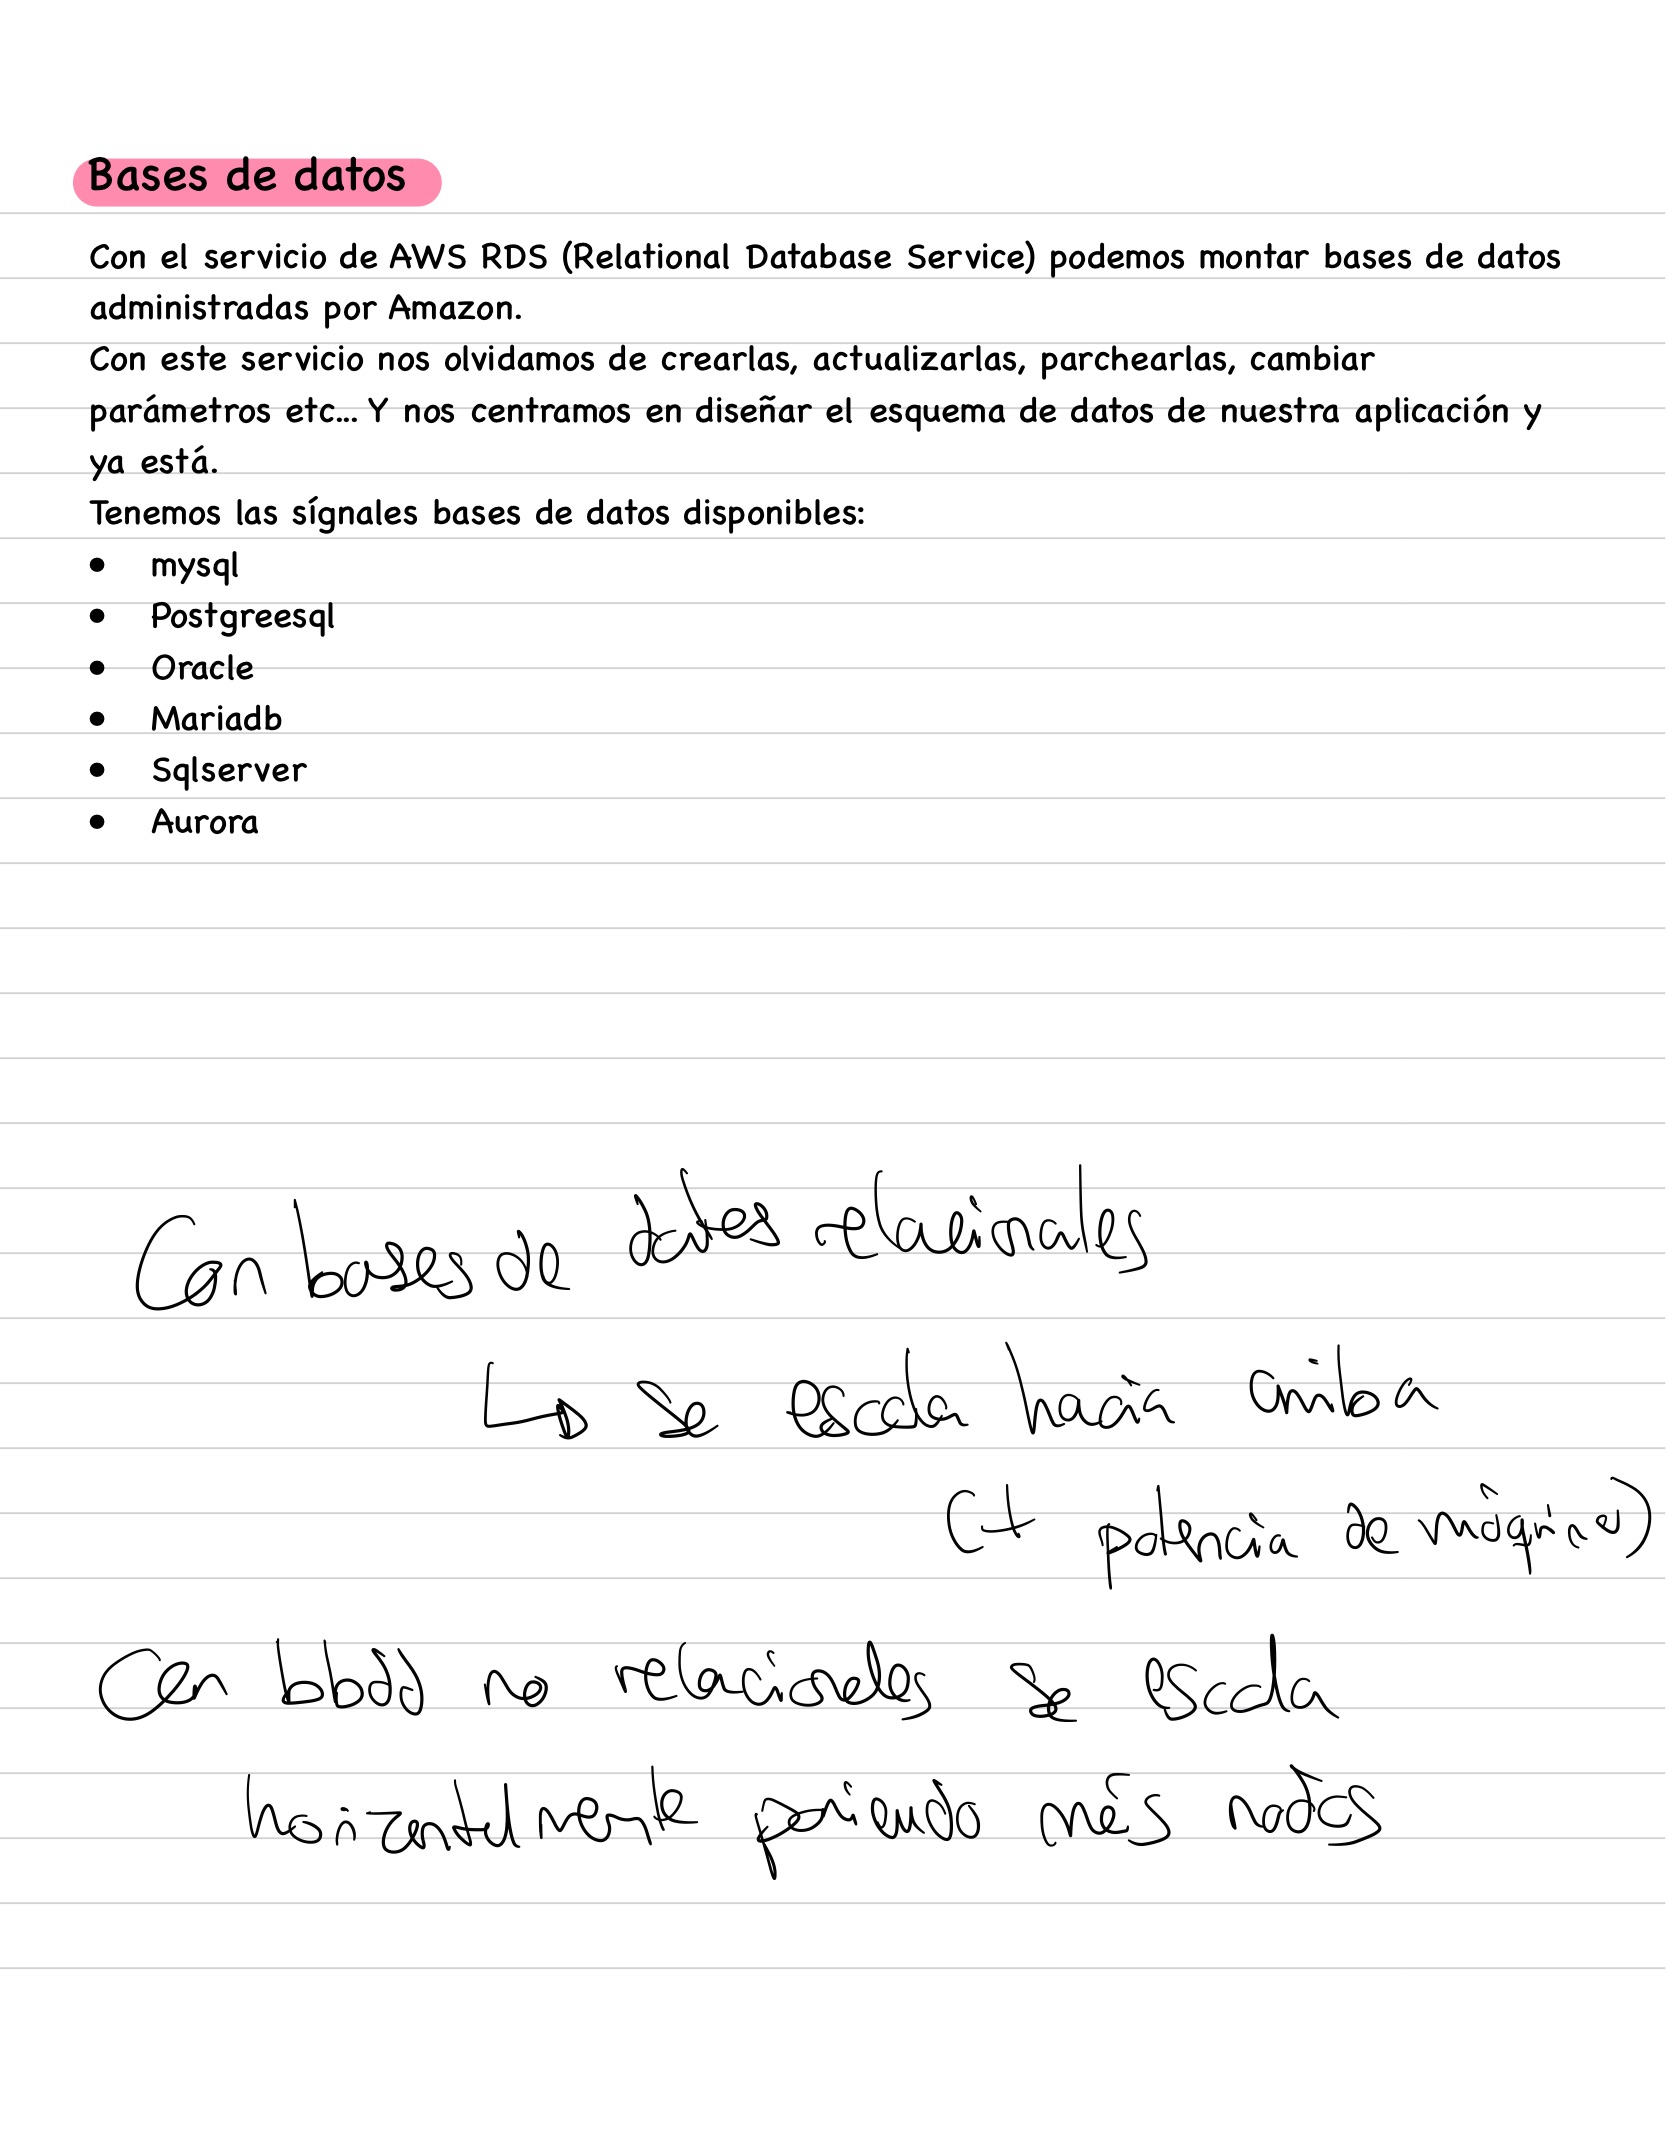 Bases de datos
Con el servicio de AWS RDS (Relational Database Service) podemos montar bases de datos
administradas por Amazon.
Con este servicio nos olvidamos de crearlas, actualizarlas, parchearlas, cambiar
parámetros etc... Y nos centramos en diseñar el esquema de datos de nuestra aplicación y
ya está.
Tenemos las sígnales bases de datos disponibles:
• mysql
• Postgreesql
• Oracle
• Mariadb
• Sqlserver
• Aurora
Con bases de datos relacionales
↳ se escala hacia arriba
(+ potencia de máquina)
Con bbdd no relacionales se escala
horizontalmente poniendo más nodos